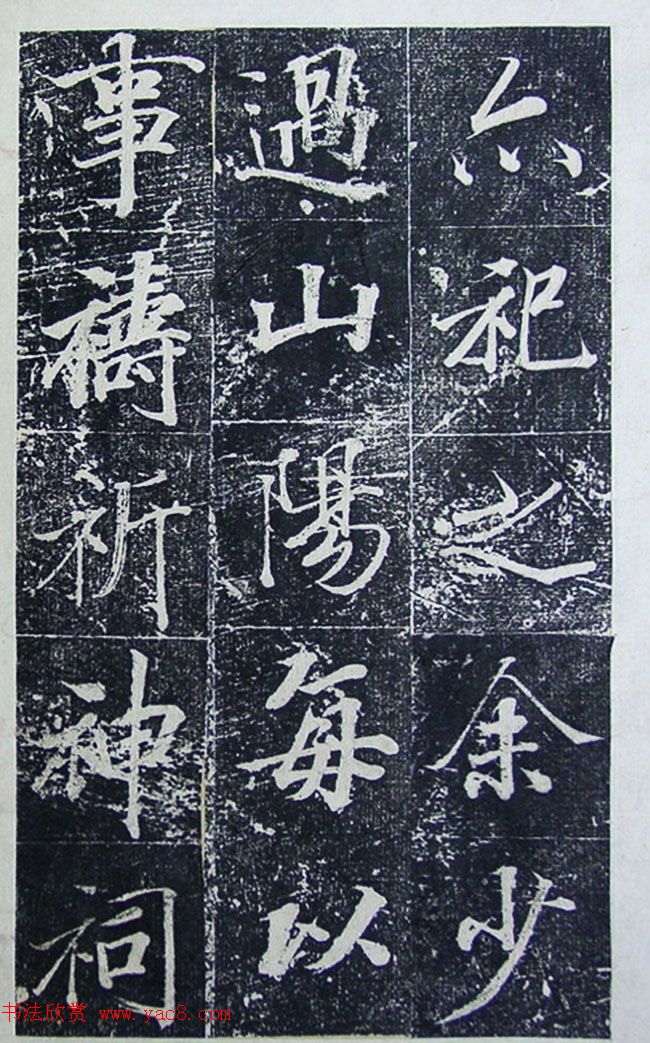 六祀之余少
過山陽每以
事禱祈神祠
书法欣赏 www.yac8.com